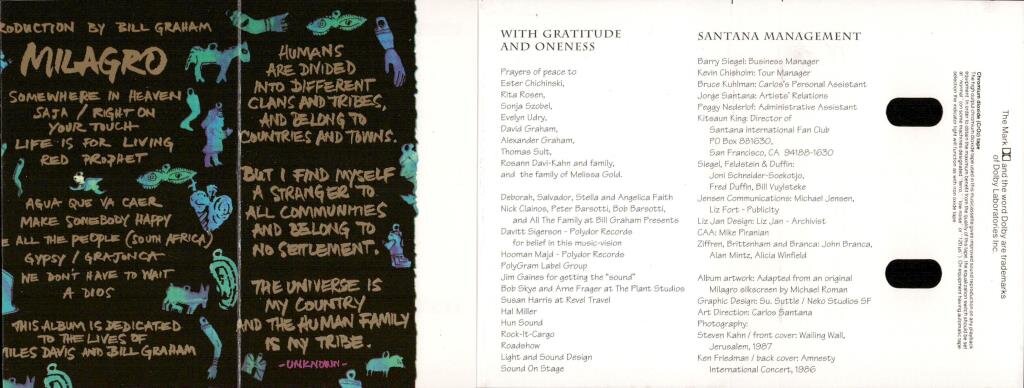 RODUCTION BY BILL GRAHAM
MILAGRO
SOMEWHERE IN HEAVEN
SAJA / RIGHT ON
YOUR TOUCH
LIFE IS FOR LIVING
RED PROPHET
AGUA QUE VA CAER
MAKE SOMEBODY HAPPY
E ALL THE PEOPLE (SOUTH AFRICA)
GYPSY / GRAJONCA
WE DON'T HAVE TO WAIT
A DIOS
THIS ALBUM IS DEDICATED
TO THE LIVES OF
MILES DAVIS AND BILL GRAHAM
HUMANS
ARE DIVIDED
INTO DIFFERENT
CLANS AND TRIBES,
AND BELONG TO
COUNTRIES AND TOWNS.
BUT I FIND MYSELF
A STRANGER TO
ALL COMMUNITIES
AND BELONG TO
NO SETLEMENT.
THE UNIVERSE IS
MY COUNTRY
AND THE HUMAN FAMILY
IS MY TRIBE.
-UNKNOWN-
WITH GRATITUDE
AND ONENESS
Prayers of peace to
Ester Chichinski,
Rita Rosen,
Sonja Szobel,
Evelyn Udry,
David Graham,
Alexander Graham,
Thomas Sult,
Rosann Davi-Kahn and family,
and the family of Melissa Gold.
Deborah, Salvador, Stella and Angelica Faith
Nick Clainos, Peter Barsotti, Bob Barsotti,
and All The Family at Bill Graham Presents
Davitt Sigerson - Polydor Records
for belief in this music-vision
Hooman Majd - Polydor Records
PolyGram Label Group
Jim Gaines for getting the "Sound"
Bob Skye and Arne Frager at The Plant Studios
Susan Harris at Revel Travel
Hal Miller
Hun Sound
Rock-It-Cargo
Roadshow
Light and Sound Design
Sound On Stage
SANTANA MANAGEMENT
Barry Siegel: Business Manager
Kevin Chisholm: Tour Manager
Bruce Kuhlman: Carlos's Personal Assistant
Jorge Santana: Artists' Relations
Peggy Nederlof: Administrative Assistant
Kitsaun King: Director of
Santana International Fan Club
PO Box 881630,
San Francisco, CA 94188-1630
Siegel, Feldstein & Duffin:
Joni Schneider-Soekotjo,
Fred Duffin, Bill Vuylsteke
Jensen Communications: Michael Jensen,
Liz Fort - Publicity
Liz Jan Design: Liz Jan - Archivist
CAA: Mike Piranian
Ziffren, Brittenham and Branca: John Branca,
Alan Mintz, Alicia Winfield
Album artwork: Adapted from an original
Milagro silkscreen by Michael Roman
Graphic Design: Su. Suttle / Neko Studios SF
Art Direction: Carlos Santana
Photography:
Steven Kahn / front cover: Wailing Wall,
Jerusalem, 1987
Ken Friedman / back cover: Amnesty
International Concert, 1986
The Mark and the word Dolby are trademarks
of Dolby Laboratories Inc.
Chromium dioxide (CrO₂) tape